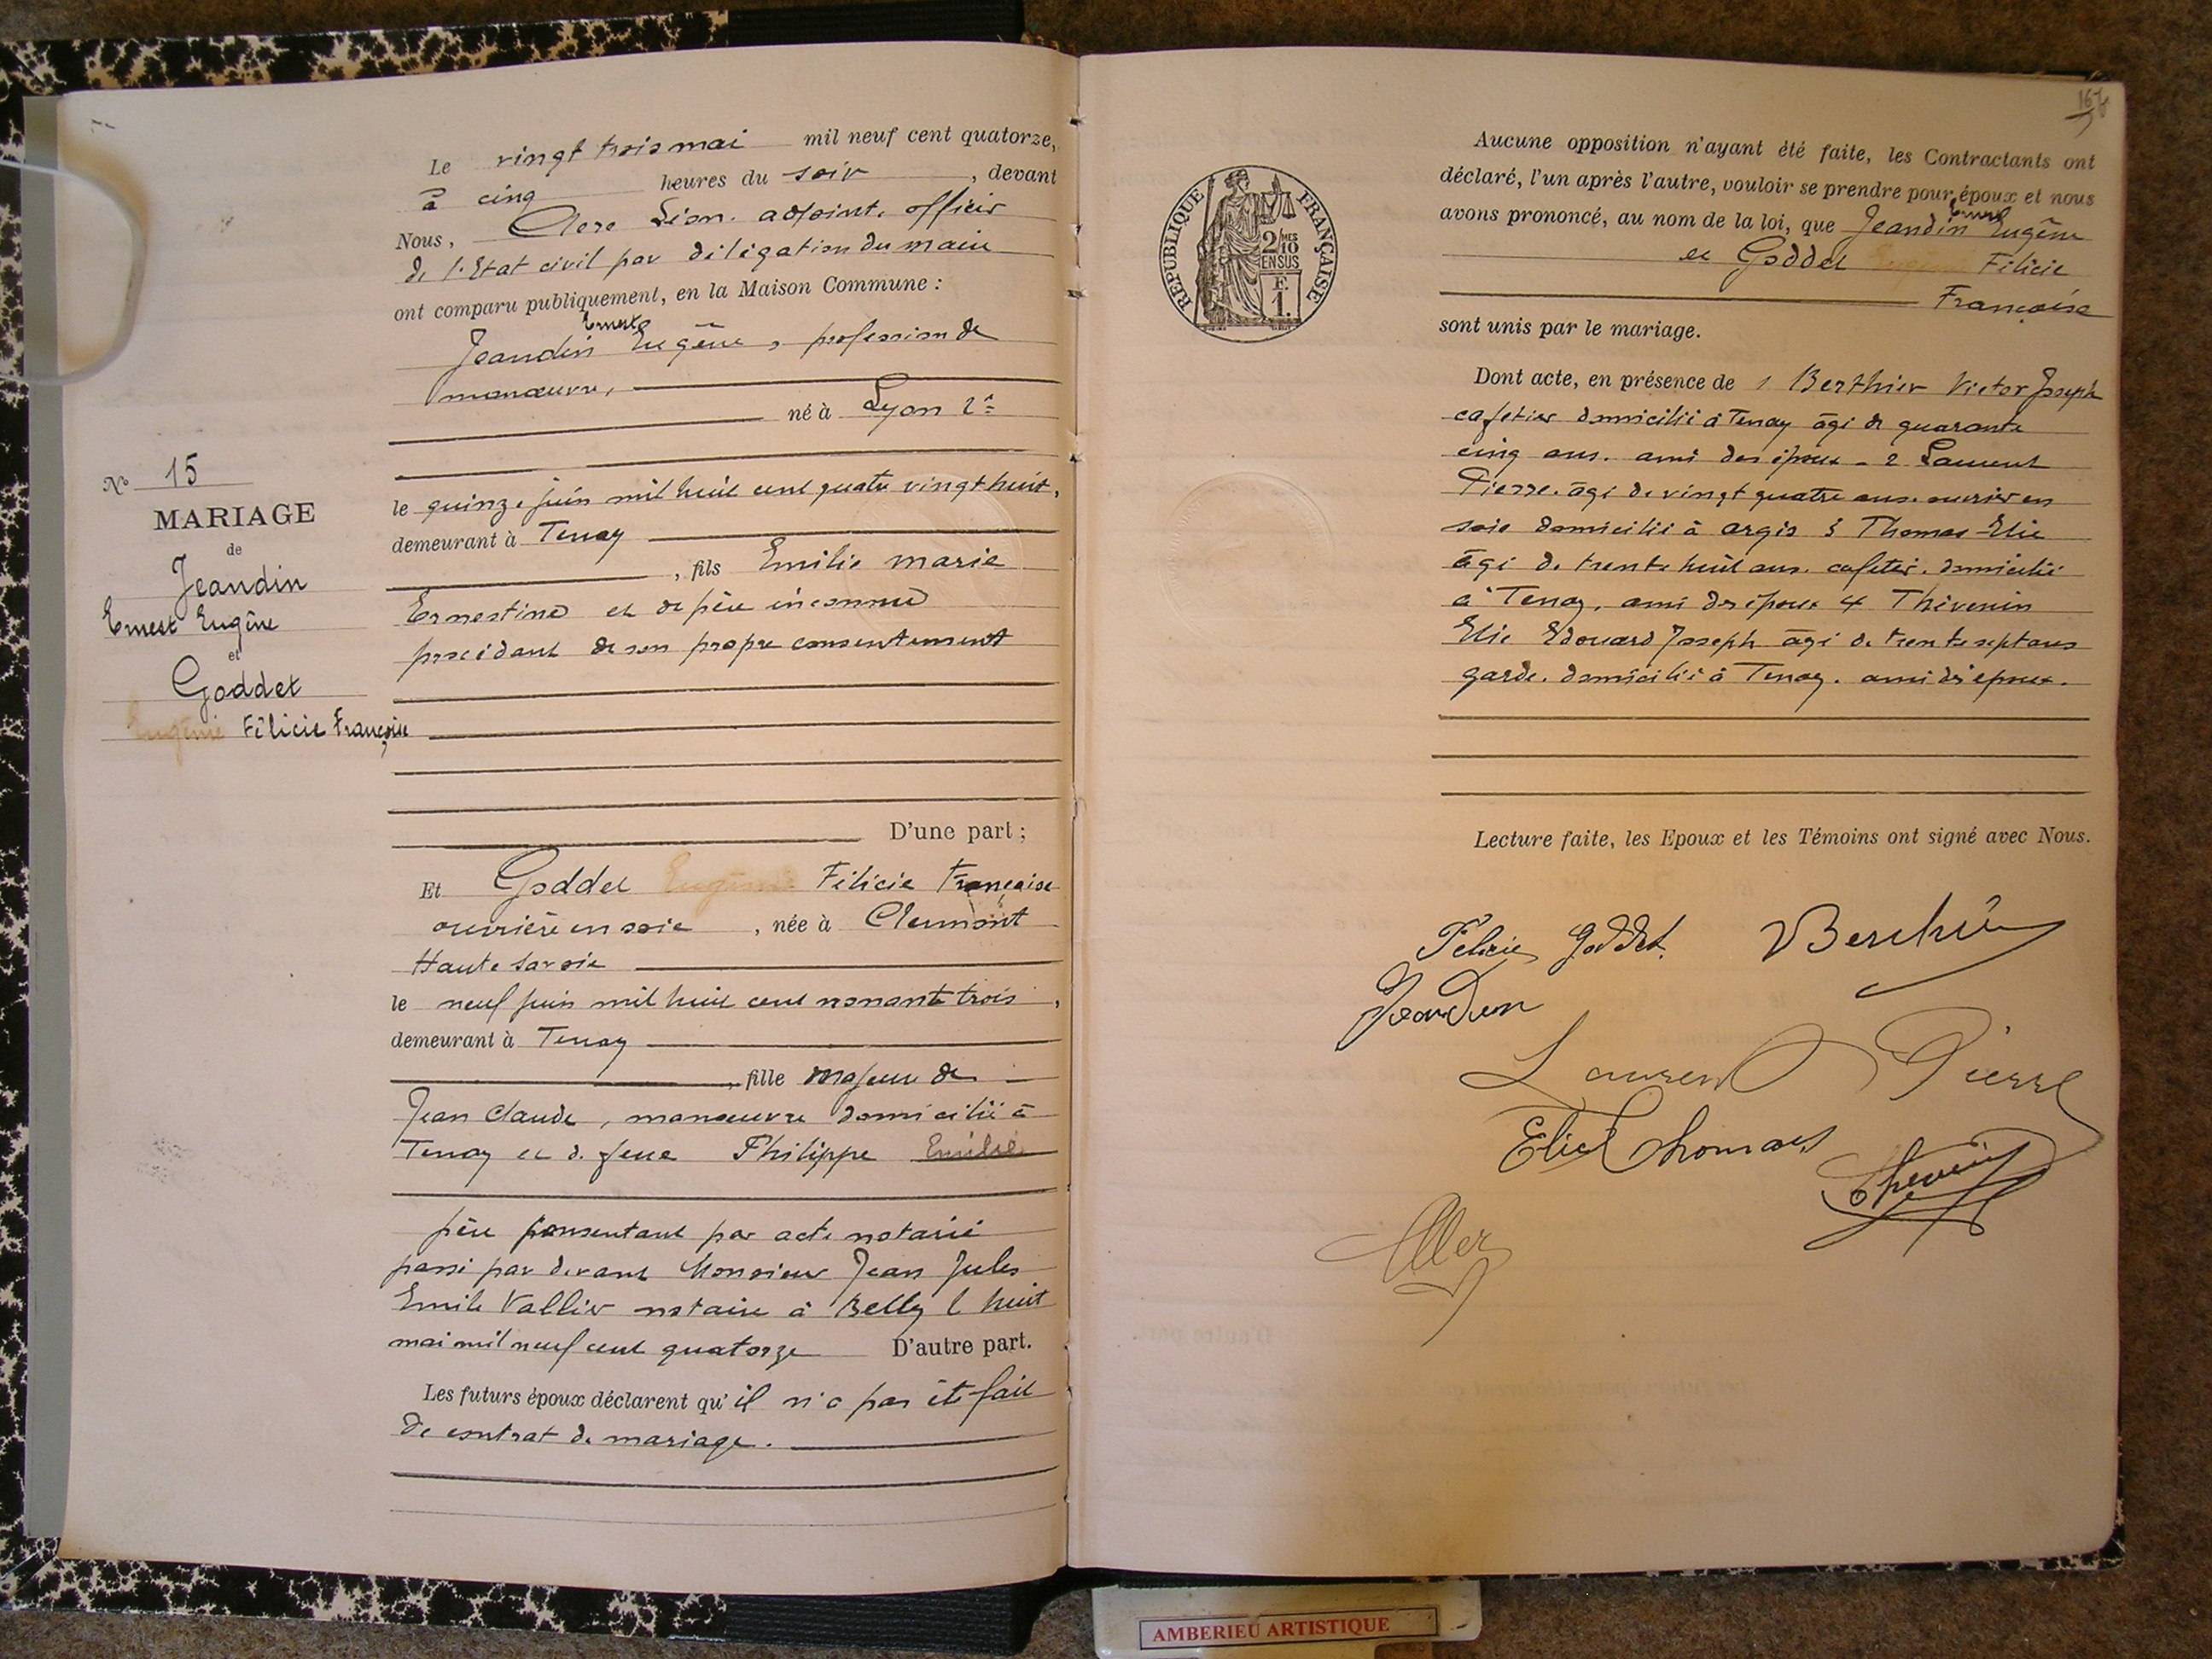 Le vingt trois mai mil neuf cent quatorze,
à cinq heures du soir, devant
Nous, Léon. adjoint. officier
de l'Etat civil par délégation du maire
ont comparu publiquement, en la Maison Commune :
Ernest
Jeandin Eugène, profession de
manœuvre,
né à Lyon 2e
N° 15
MARIAGE
de
Jeandin
Ernest Eugène
et
Goddet
Eugénie Félicie Françoise
le quinze juin mil huit cent quatre vingt huit,
demeurant à Tenay
, fils Emilie marie
Ernestine et de père inconnu
procédant de son propre consentement
D'une part ;
Et Goddet Eugénie Félicie Françoise
ouvrière en soie, née à Clermont
Haute Savoie
le neuf juin mil huit cent nonante trois,
demeurant à Tenay
, fille majeure de
Jean Claude, manœuvre domicilié à
Tenay et de feue Philippe Emilie
père consentant par acte notarié
passé par devant Monsieur Jean Jules
Emile Vallier notaire à Belley l huit
mai mil neuf cent quatorze D'autre part.
Les futurs époux déclarent qu'il n'a pas été fait
de contrat de mariage.
167
REPUBLIQUE FRANÇAISE
2/10 MES
EN SUS
F.
1.
Aucune opposition n'ayant été faite, les Contractants ont
déclaré, l'un après l'autre, vouloir se prendre pour époux et nous
avons prononcé, au nom de la loi, que Jeandin Ernest Eugène
et Goddet Félicie
Françoise
sont unis par le mariage.
Dont acte, en présence de 1 Berthier Victor Joseph
cafetier domicilié à Tenay âgé de quarante
cinq ans. ami des époux - 2 Laurent
Pierre. âgé de vingt quatre ans. ouvrier en
soie domicilié à argis 3 Thomas Elie
âgé de trente huit ans. cafetier. domicilié
à Tenay. ami des époux 4 Thévenin
Elie Edouard Joseph âgé de trente sept ans
garde. domicilié à Tenay. ami des époux.
Lecture faite, les Epoux et les Témoins ont signé avec Nous.
Félicie Goddet. VBerthier
Jeandin
Laurent Pierre
Elie Thomas
Thevenin
AMBERIEU ARTISTIQUE